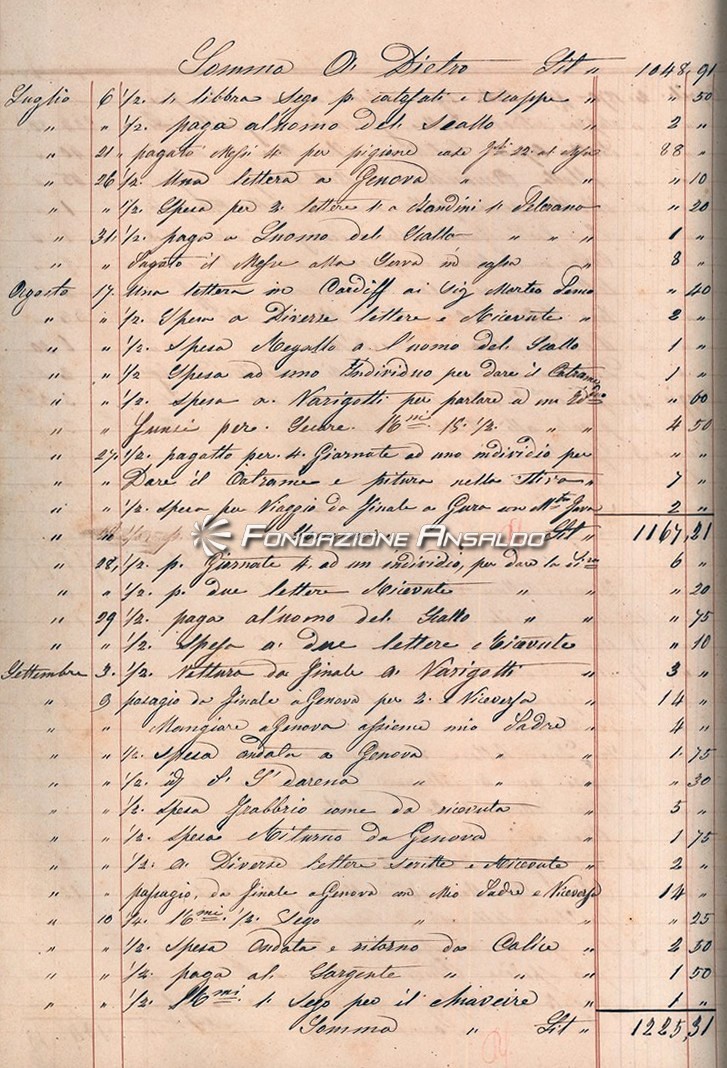 Somma A' Dietro Lit " 1048,91
Luglio 6 1/2. 1. libbra Sego p. e Scappe " " 50
" " 1/2. paga al'uomo del Scallo " 2 "
" 21 " pagato Mesi 4 per pigione case 22. al 88 "
" 26 1/2. Una lettera a Genova " " " 10
" " 1/2. Spesa per 2. lettere 1. a 1. " " 20
" 31. 1/2. paga a Luomo del Scallo " " " 1 "
" " Pagato il Mese alla Serva in " 8 "
Agosto 17. Una lettera in Cardiff ai Sig " 40
" " 1/2. Spesa a Diverse lettere e Ricevute " 2 "
" " 1/2. Spesa Regallo a l'uomo del Scallo " 1 "
" " 1/2 Spesa ad uno Individuo per dare il Catrame 1 "
" " 1/2. Spesa a Varigotti per parlare a un " 60
" " per. 16mi 15. 1/2. " " 4 50
" 27. 1/2. pagatto per. 4. Giornate ad uno individio per " "
" " Dare il Catrame e pitura nella Stiva " 7 "
" " 1/2. Spesa per Viaggio da Finale a un 2 "
FONDAZIONE ANSALDO
" Lit " 1167,21
" 28. 1/2. p. Giornate 4. ad un individio, per dare la 6 "
" " 1/2. p. due lettere Ricevute " " " 20
" 29 1/2. paga al'uomo del Scallo " " 75
" " 1/2. Spesa a due lettere e Ricevute " 10
Settembre 3. 1/2. Vettura da Finale a Varigotti " 3 "
" 9 pasagio da Finale a Genova per 2. e Viceversa " 14 "
" " Mangiare a Genova assieme mio Padre " 4 "
" " 1/2. Spesa andata a Genova " " 1. 75
" " 1/2. id S. P. darena " " " " 30
" " 1/2. Spesa come da ricevuta " 5 "
" " 1/2. Spesa Riturno da Genova " 1 75
" " 1/2. a Diverse lettere scritte e Ricevute " 2 "
" " passagio, da Finale a Genova un Mio Padre e Viceversa 14 "
" 10 1/4. 16mi. 1/2. Sego " " " 25
" " 1/2. Spesa Andata e ritorno da Calice " 2 50
" " 1/2. paga al Sargente " " " 1 50
" " 1/2. 16mi 1. Sego per il " 1 "
Somma " Lit " 1225,31